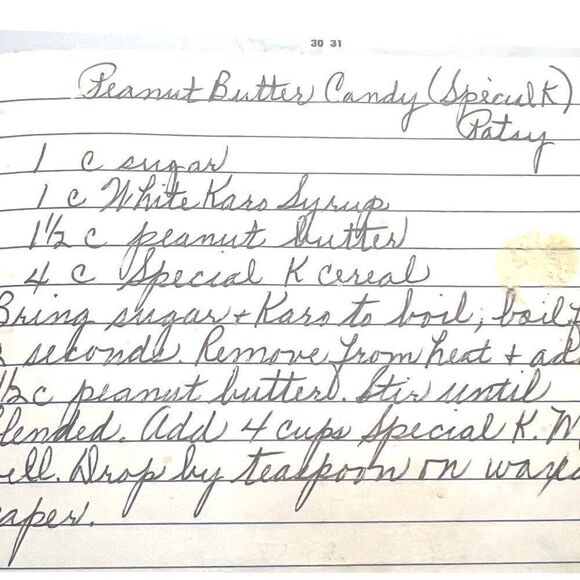 30 31
Peanut Butter Candy (Special K)
Patsy
1 c sugar
1 c White Karo Syrup
1 1/2 c peanut butter
4 c Special K cereal
Bring sugar + Karo to boil, boil
seconds. Remove from heat + ad
1/2 c peanut butter. Stir until
lended. Add 4 cups Special K. M
ell. Drop by teaspoon on waxe
aper.